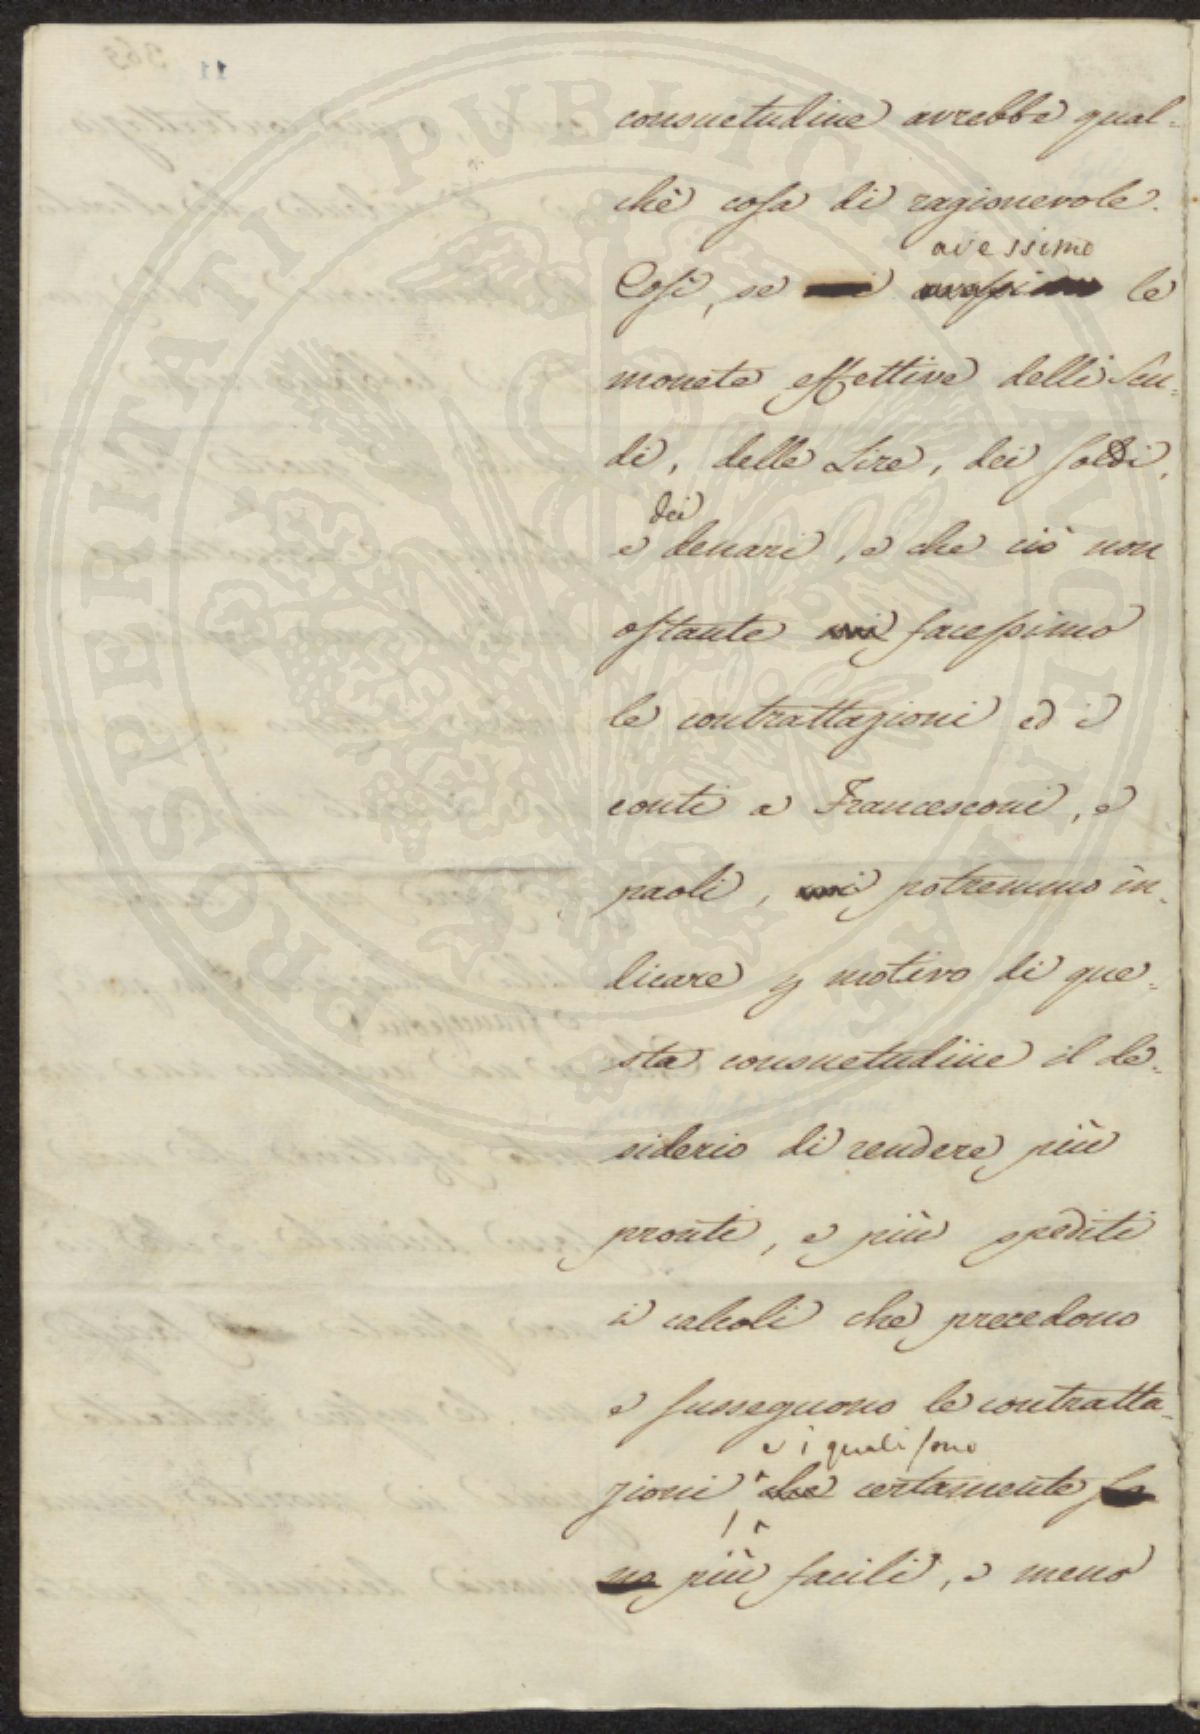 consuetudine avrebbe qual-
chè cosa di ragionevole.
avessimo
Così, se le
monete effettive delli Scu-
di, delle Lire, dei soldi,
dei
e denari, e che ciò non
ostante facessimo
le contrattazioni ed i
conti a Francesconi, e
paoli, potremmo in-
dicare p motivo di que-
sta consuetudine il de-
siderio di rendere più
pronti, e più spediti
i calcoli che precedono
e susseguono le contratta-
e i quali sono
zioni che certamente so
no più facili, e meno
PROSPERITATI PUBLICAE AUGENDAE